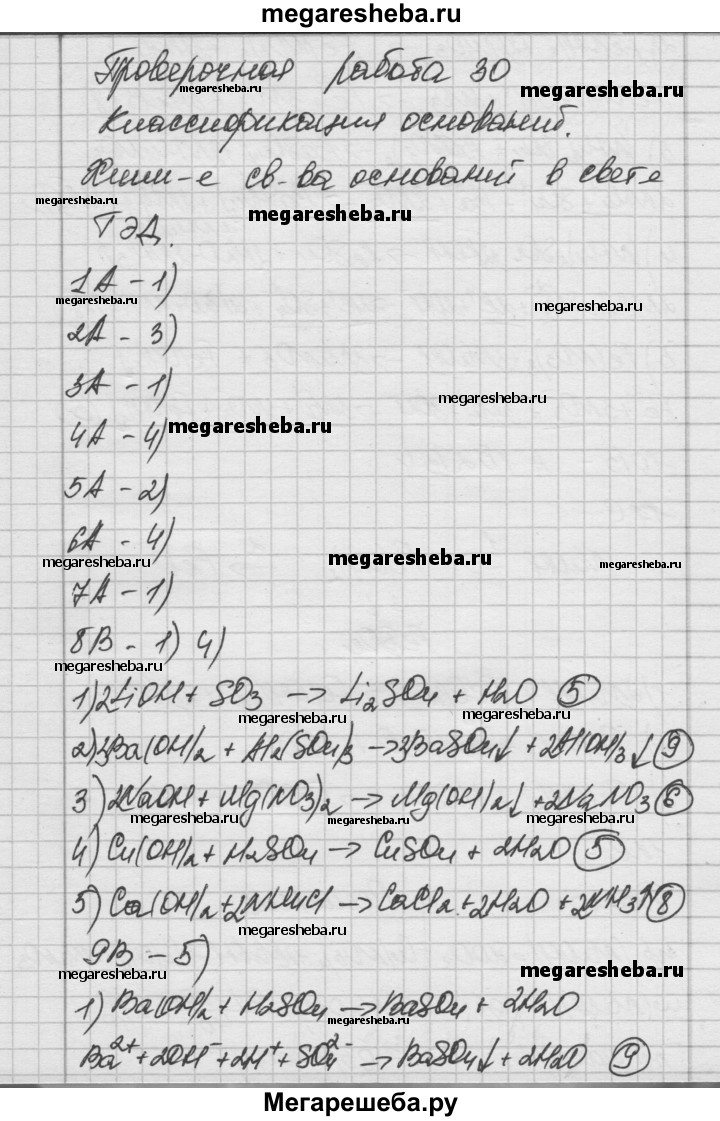 megaresheba.ru
Проверочная работа 30
megaresheba.ru
megaresheba.ru
Классификация оснований.
Хими-е св-ва оснований в свете
megaresheba.ru
megaresheba.ru
ТЭД.
1А - 1)
megaresheba.ru
megaresheba.ru
2А - 3)
3А - 1)
megaresheba.ru
4А - 4)
megaresheba.ru
5А - 2)
6А - 4)
megaresheba.ru
megaresheba.ru
megaresheba.ru
7А - 1)
8В - 1) 4)
megaresheba.ru
1) 2LiOH + SO3 → Li2SO4 + H2O (5)
megaresheba.ru
megaresheba.ru
2) 3Ba(OH)2 + Al2(SO4)3 → 3BaSO4↓ + 2Al(OH)3↓ (9)
3) 2NaOH + Mg(NO3)2 → Mg(OH)2↓ + 2NaNO3 (6)
megaresheba.ru
megaresheba.ru
megaresheba.ru
4) Cu(OH)2 + H2SO4 → CuSO4 + 2H2O (5)
5) Ca(OH)2 + 2NH4Cl → CaCl2 + 2H2O + 2NH3↑ (8)
megaresheba.ru
9В - 5)
megaresheba.ru
megaresheba.ru
1) Ba(OH)2 + H2SO4 → BaSO4 + 2H2O
megaresheba.ru
Ba2+ + 2OH- + 2H+ + SO42- → BaSO4↓ + 2H2O (9)
megaresheba.ru
megaresheba.ru
Мегарешеба.ру